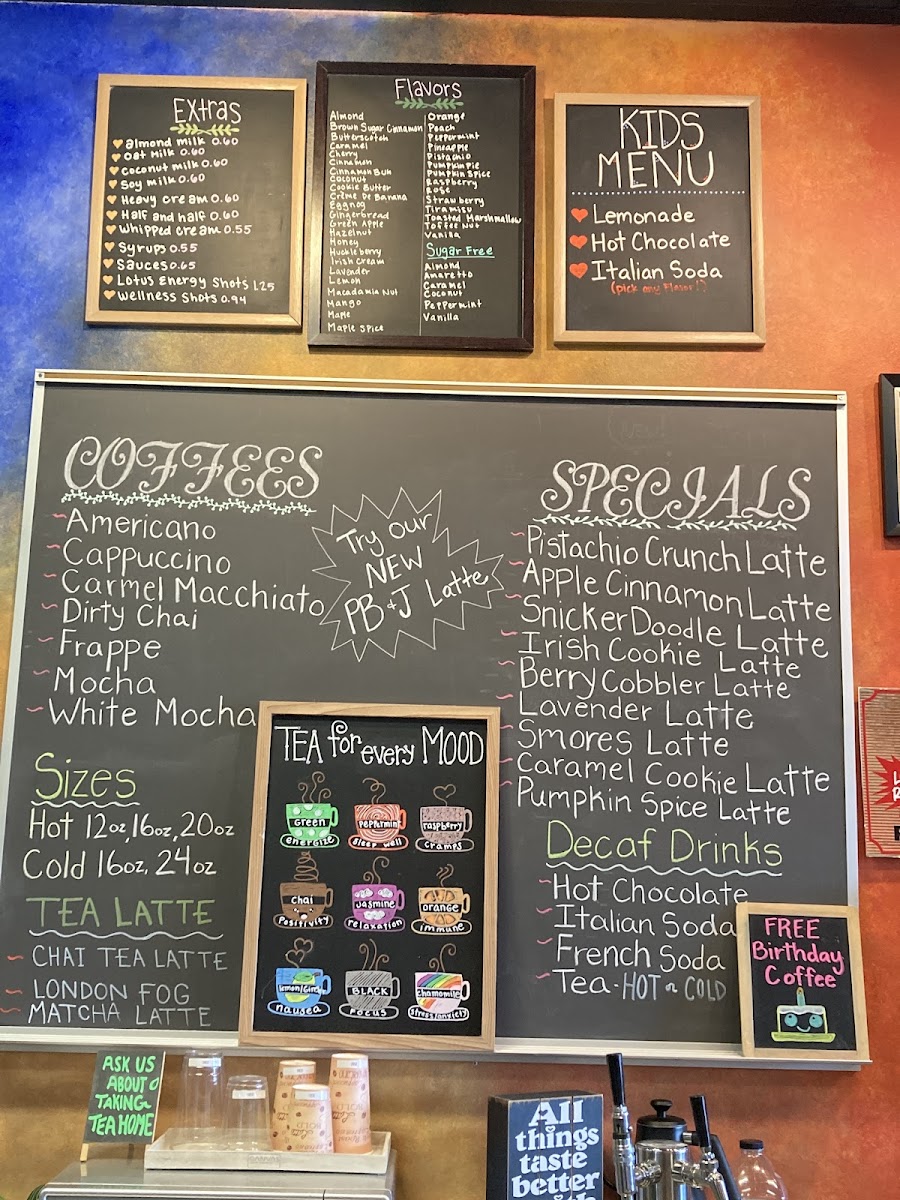 Extras
almond milk 0.60
oat milk 0.60
coconut milk 0.60
Soy milk 0.60
Heavy cream 0.60
Half and half 0.60
whipped cream 0.55
Syrups 0.55
Sauces 0.65
Lotus Energy Shots 1.25
wellness Shots 0.94
Flavors
Almond
Brown Sugar Cinnamon
Butterscotch
Caramel
Cherry
Cinnamon
Cinnamon Bun
Coconut
Cookie Butter
Crème De Banana
Eggnog
Gingerbread
Green Apple
Hazelnut
Honey
Huckleberry
Irish Cream
Lavender
Lemon
Macadamia Nut
Mango
Maple
Maple Spice
Orange
Peach
Peppermint
Pineapple
Pistachio
Pumpkin Pie
Pumpkin Spice
Raspberry
Rose
Strawberry
Tiramisu
Toasted Marshmallow
Toffee Nut
Vanilla
Sugar Free
Almond
Amaretto
Caramel
Coconut
Peppermint
Vanilla
KIDS
MENU
Lemonade
Hot Chocolate
Italian Soda
(pick any Flavor!)
COFFEES
Americano
Cappuccino
Carmel Macchiato
Dirty Chai
Frappe
Mocha
White Mocha
Try our
NEW
PB+J Latte
Sizes
Hot 12oz, 16oz, 20oz
Cold 16oz, 24oz
TEA LATTE
CHAI TEA LATTE
LONDON FOG
MATCHA LATTE
TEA for every MOOD
Green
energize
Peppermint
sleep well
raspberry
cramps
chai
Positivity
Jasmine
relaxation
orange
immune
lemon/Ginger
nausea
BLACK
Focus
chamomile
stress/anxiety
NEW!
SPECIALS
Pistachio Crunch Latte
Apple Cinnamon Latte
SnickerDoodle Latte
Irish Cookie Latte
Berry Cobbler Latte
Lavender Latte
Smores Latte
Caramel Cookie Latte
Pumpkin Spice Latte
Decaf Drinks
Hot Chocolate
Italian Soda
French Soda
Tea - HOT or COLD
FREE
Birthday
Coffee
ASK US
ABOUT
TAKING
TEA HOME
All
things
taste
better
with